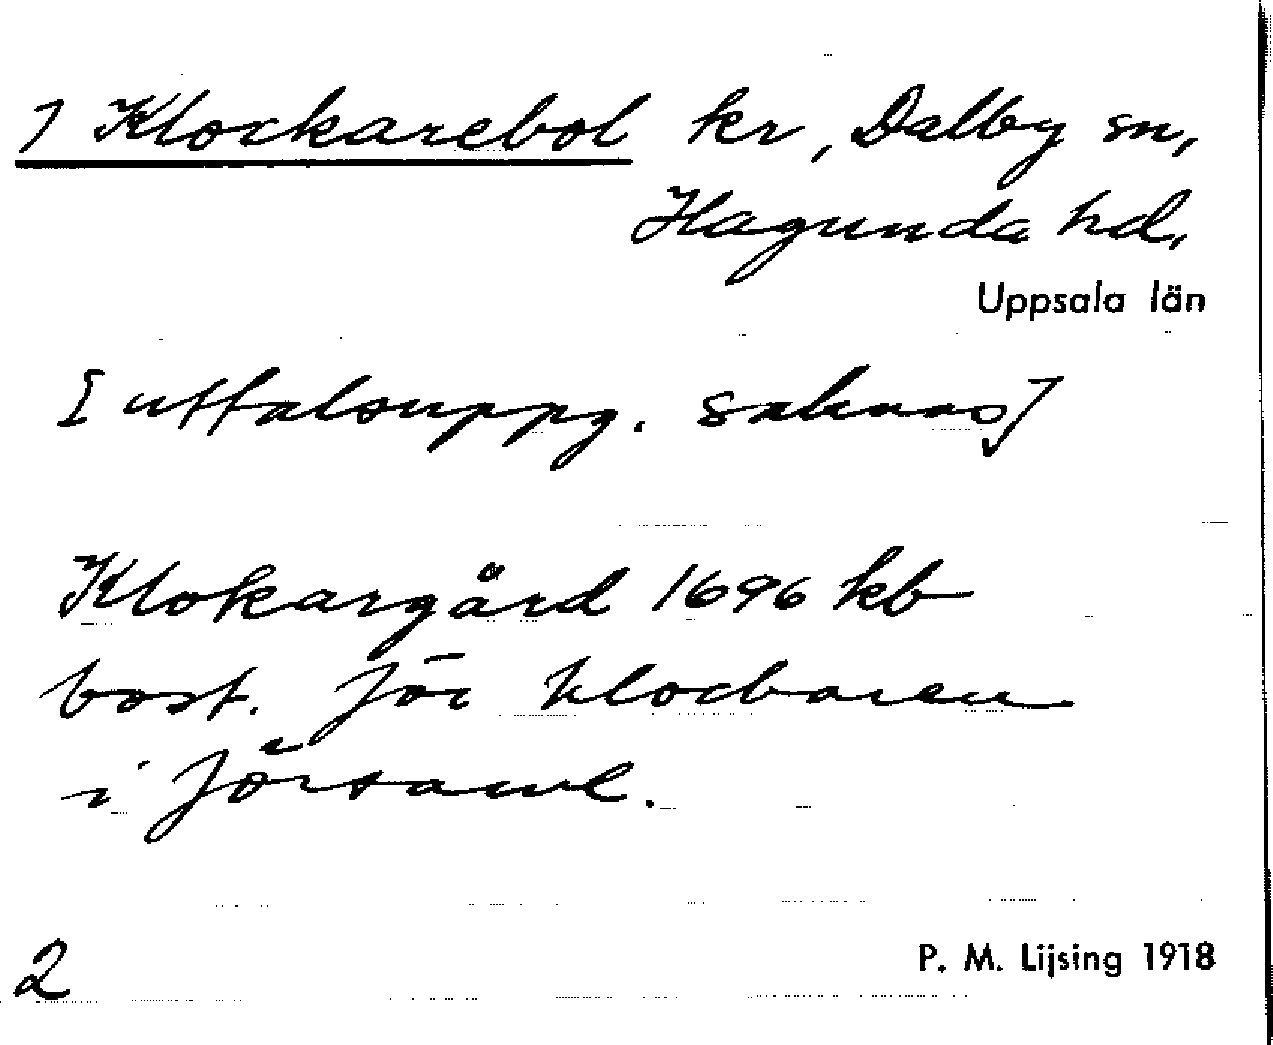 7 Klockarebol kr, Dalby sn,
Hagunda hd,
Uppsala län
[uttalsuppg. saknas]
Klokargård 1696 kb
bost. för klockaren
i församl.
2
P. M. Lijsing 1918